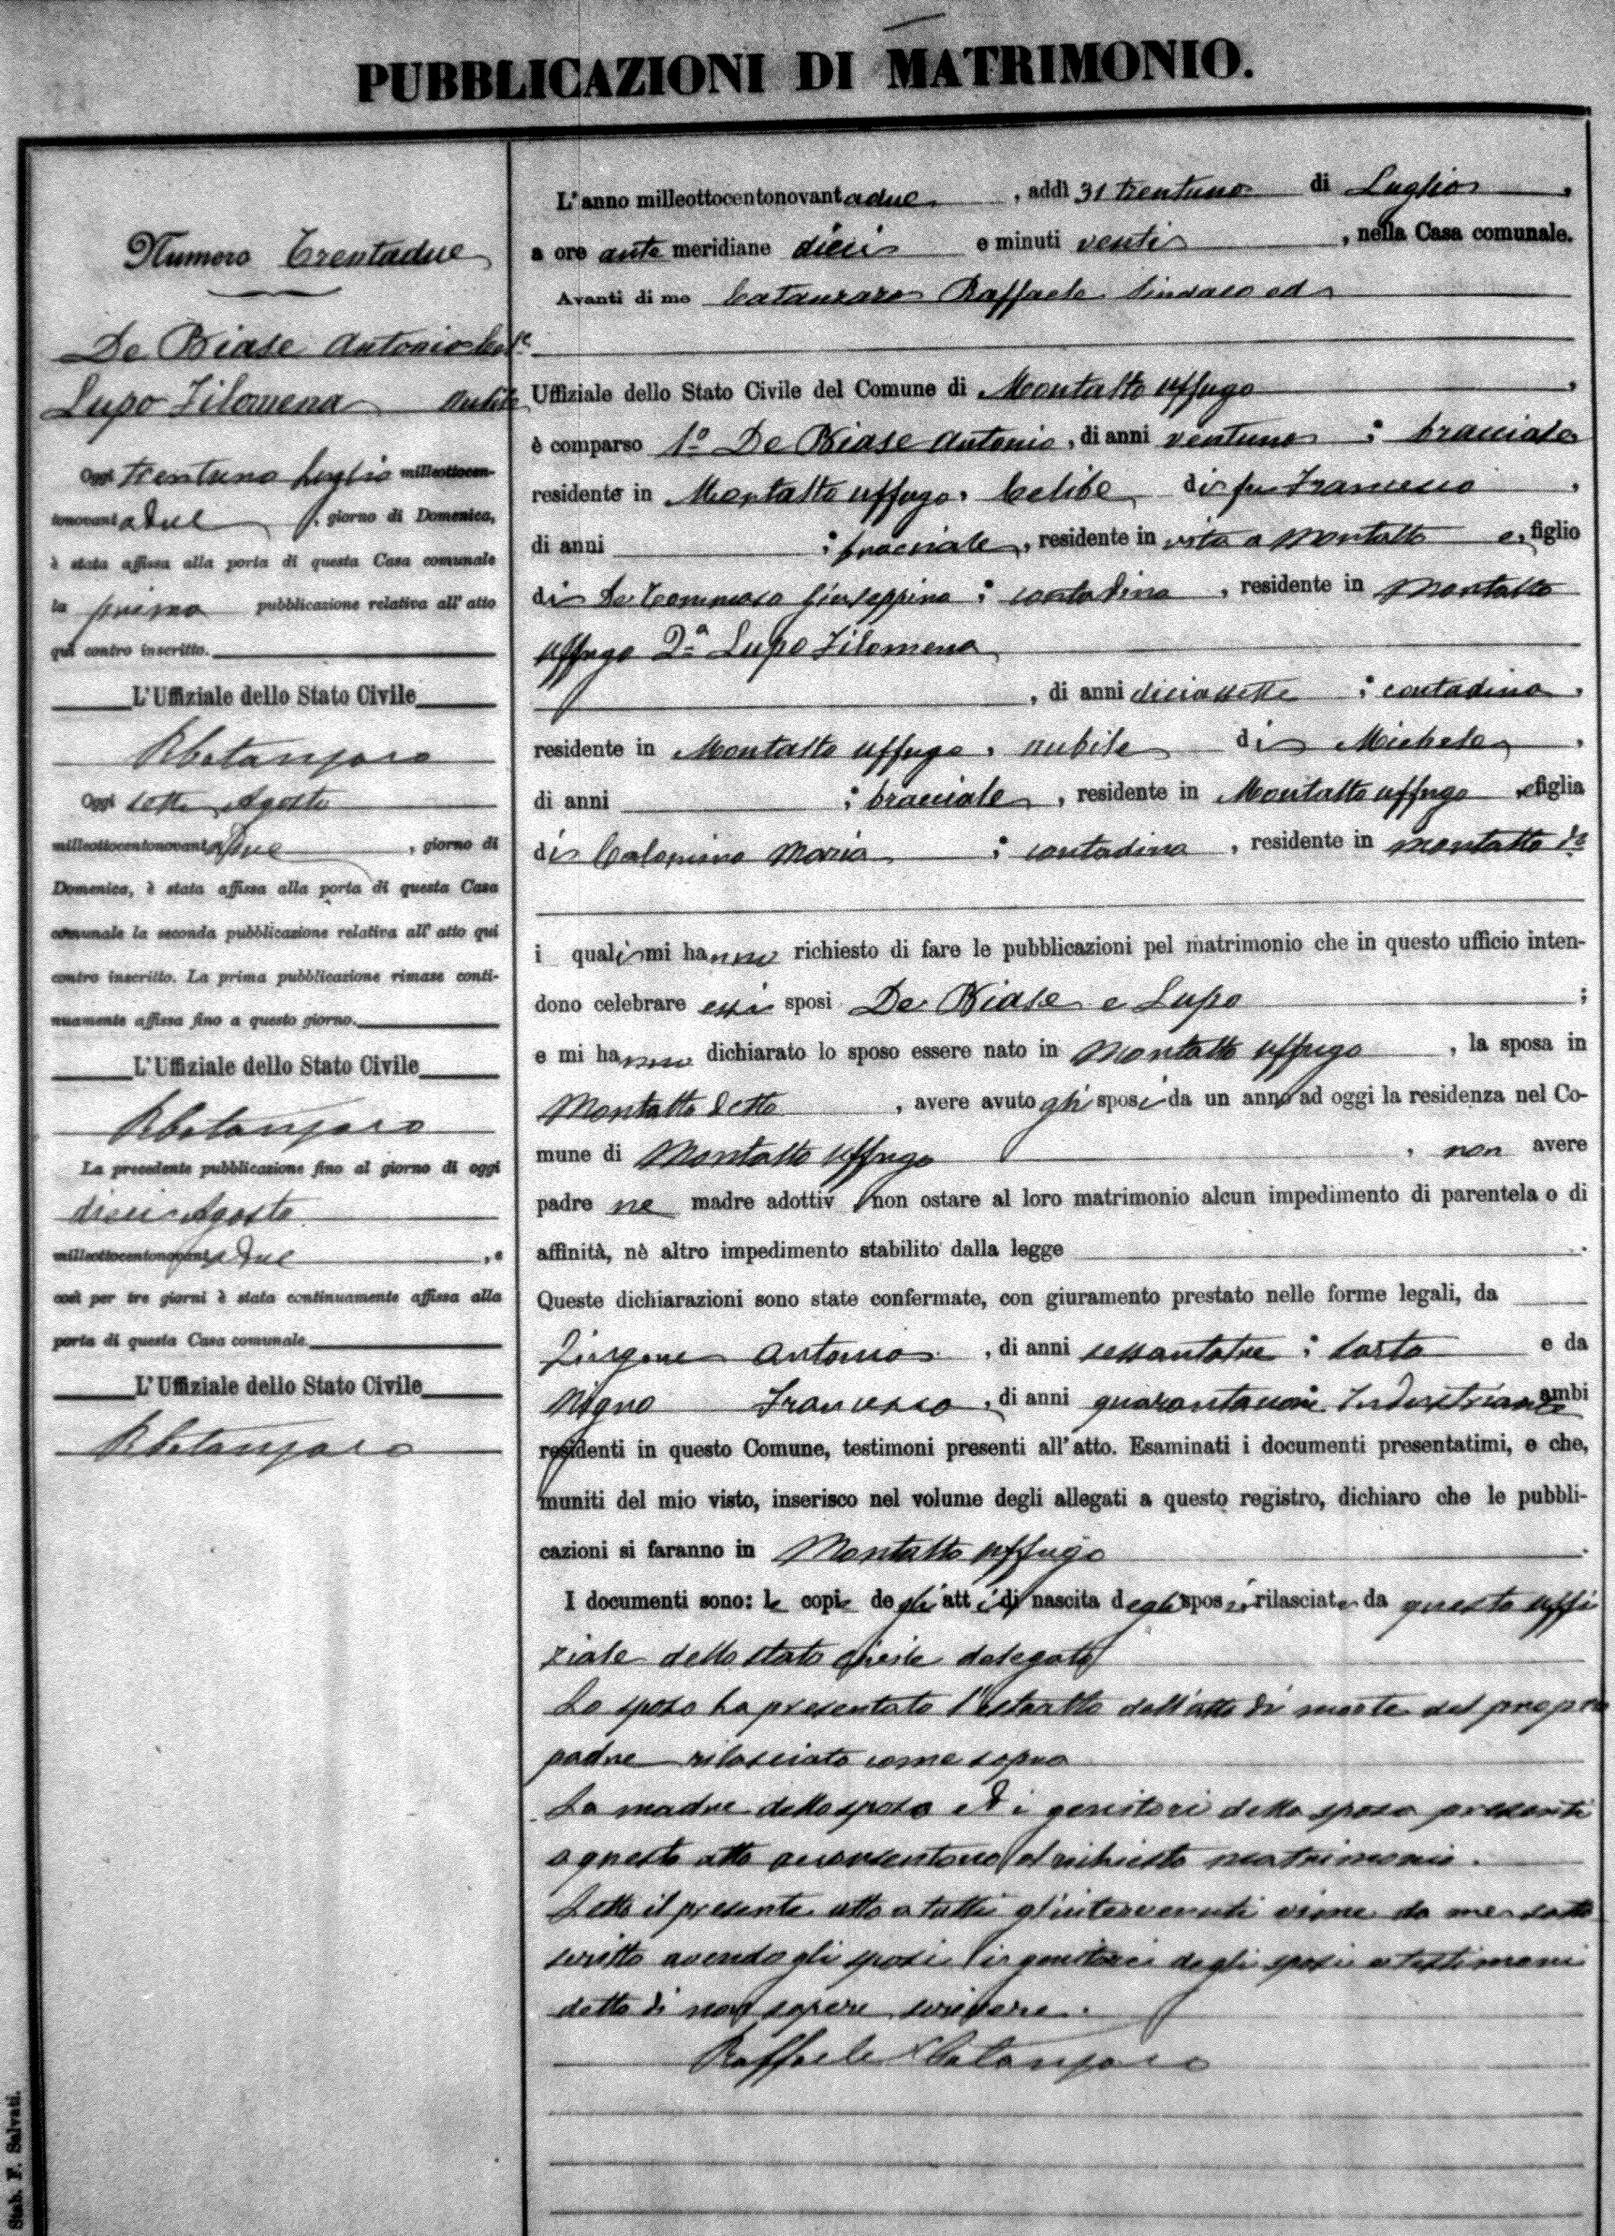 PUBBLICAZIONI DI MATRIMONIO.
Numero Trentadue
De Biase Antonio Cele
Lupo Filomena nubile
Oggi trentuno Luglio milleottocen-
tonovantadue, giorno di Domenica,
è stata affissa alla porta di questa Casa comunale
la prima pubblicazione relativa all' atto
qui contro inscritto.
L'Uffiziale dello Stato Civile
RCatanzaro
Oggi sette Agosto
milleottocentonovantadue, giorno di
Domenica, è stata affissa alla porta di questa Casa
comunale la seconda pubblicazione relativa all' atto qui
contro inscritto. La prima pubblicazione rimase conti-
nuamente affissa fino a questo giorno.
L'Uffiziale dello Stato Civile
RCatanzaro
La precedente pubblicazione fino al giorno di oggi
dieci Agosto
milleottocentonovantadue, e
così per tre giorni è stata continuamente affissa alla
porta di questa Casa comunale.
L'Uffiziale dello Stato Civile
RCatanzaro
L'anno milleottocentonovantadue, addì 31 trentuno di Luglio,
a ore ante meridiane dieci e minuti venti, nella Casa comunale.
Avanti di me Catanzaro Raffaele Sindaco ed
Uffiziale dello Stato Civile del Comune di Montalto Uffugo,
è comparso 1º De Biase Antonio, di anni ventuno; bracciale
residente in Montalto Uffugo, Celibe di fu Francesco,
di anni ; bracciale, residente in vita a Montalto e, figlio
di De Tommaso Giuseppina; contadina, residente in Montalto
Uffugo 2ª Lupo Filomena
, di anni diciassette; contadina,
residente in Montalto Uffugo, nubile di Michele,
di anni ; bracciale, residente in Montalto Uffugo, e figlia
di Calomino Maria; contadina, residente in Montalto do
i quali mi hanno richiesto di fare le pubblicazioni pel matrimonio che in questo ufficio inten-
dono celebrare essi sposi De Biase e Lupo;
e mi hanno dichiarato lo sposo essere nato in Montalto Uffugo, la sposa in
Montalto detto, avere avuto gli sposi da un anno ad oggi la residenza nel Co-
mune di Montalto Uffugo, non avere
padre ne madre adottiv, non ostare al loro matrimonio alcun impedimento di parentela o di
affinità, nè altro impedimento stabilito dalla legge.
Queste dichiarazioni sono state confermate, con giuramento prestato nelle forme legali, da
Zingone Antonio, di anni sessantatre; sarto e da
Nigro Francesco, di anni quarantanove Industriante ambi
residenti in questo Comune, testimoni presenti all'atto. Esaminati i documenti presentatimi, e che,
muniti del mio visto, inserisco nel volume degli allegati a questo registro, dichiaro che le pubbli-
cazioni si faranno in Montalto Uffugo.
I documenti sono: le copie degli atti di nascita degli sposi, rilasciate da questo uffi
ziale dello stato civile delegato
Lo sposo ha presentato l'estratto dell'atto di morte del proprio
padre rilasciato come sopra
La madre dello sposo ed i genitori della sposa presenti
a questo atto acconsentono al richiesto matrimonio.
Letto il presente atto a tutti gl'intervenuti viene da me sotto
scritto avendo gli sposi i genitori degli sposi e testimoni
detto di non sapere scrivere.
Raffaele Catanzaro
Stab. F. Salvati.